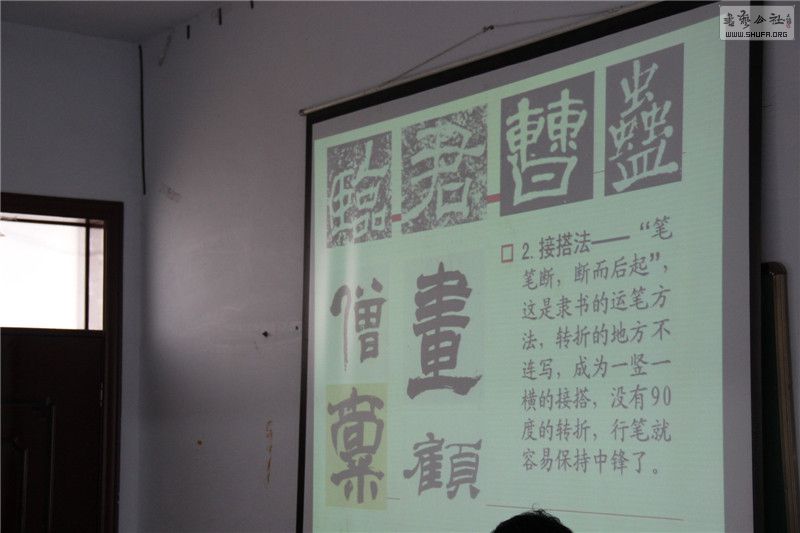 书艺公社
WWW.SHUFA.ORG
臨 君 曹 蠱
2. 接搭法——“笔
笔断，断而后起”，
这是隶书的运笔方
法，转折的地方不
连写，成为一竖一
横的接搭，没有90
度的转折，行笔就
容易保持中锋了。
僧 畫
稟 顧